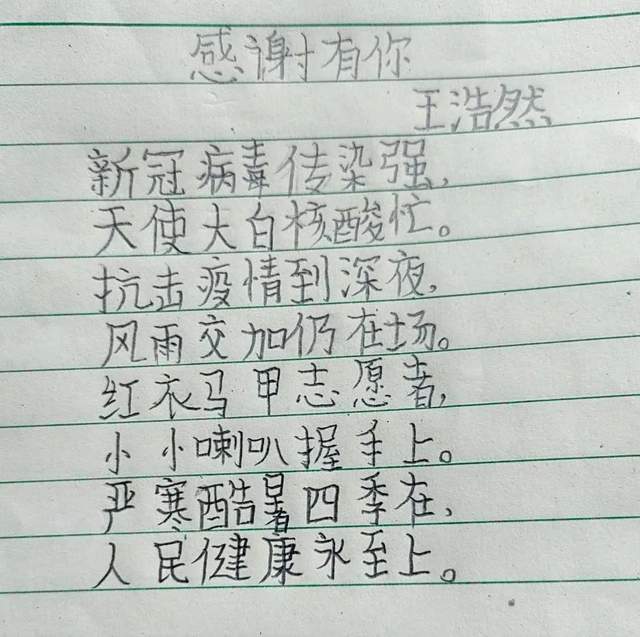 感谢有你
王浩然
新冠病毒传染强,
天使大白核酸忙。
抗击疫情到深夜,
风雨交加仍在场。
红衣马甲志愿者,
小小喇叭握手上。
严寒酷暑四季在,
人民健康永至上。